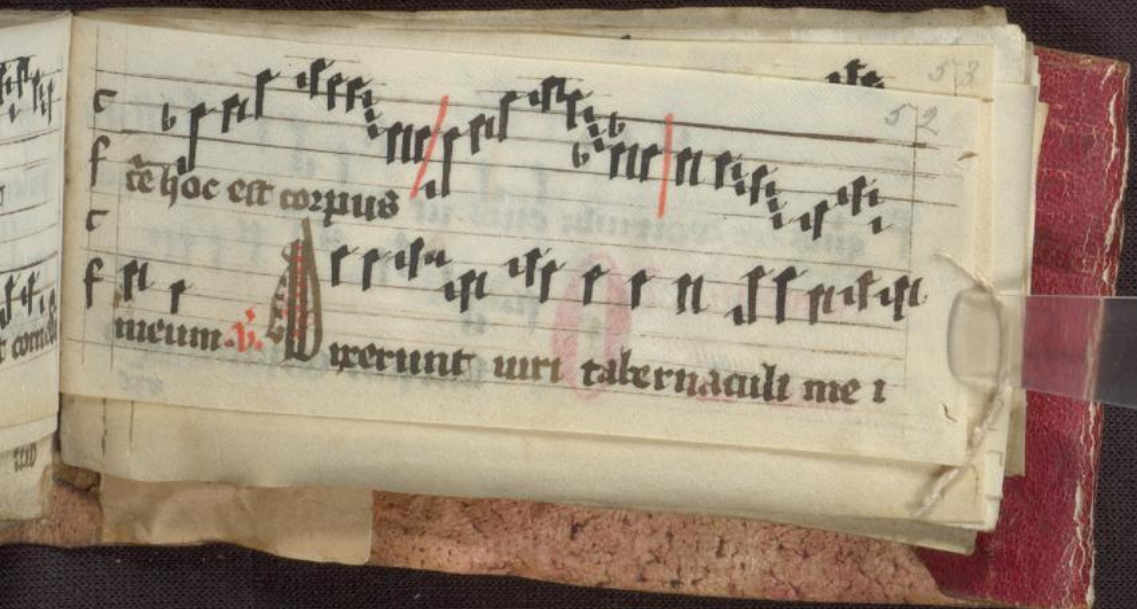 53
52
c
f
c̄e hoc est corpus
c
f
meum. V. Dixerunt uiri tabernaculi me i